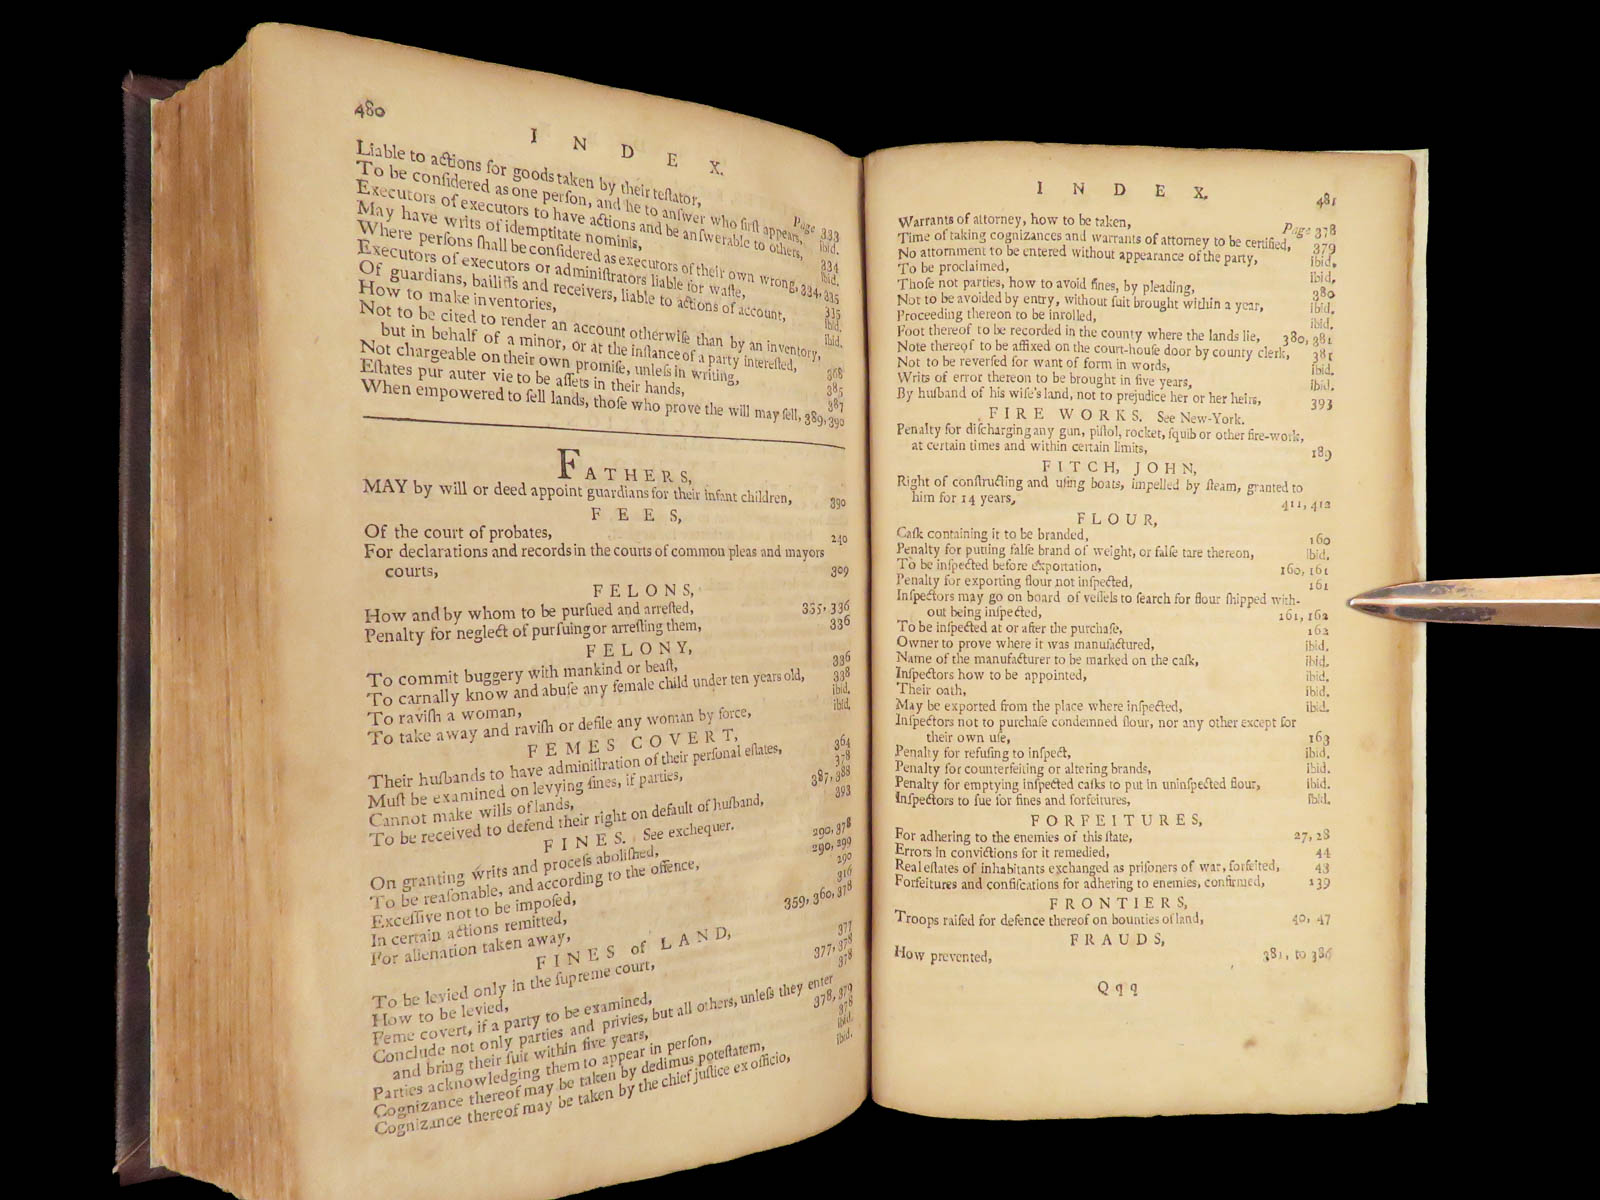 480
I N D E X.
Liable to actions for goods taken by their teſtator, Page 333
To be conſidered as one perſon, and he to anſwer who firſt appears, ibid.
Executors of executors to have actions and be anſwerable to others, 334
May have writs of idemptitate nominis, ibid.
Where perſons ſhall be conſidered as executors of their own wrong, 334, 335
Executors of executors or adminiſtrators liable for waſte, 335
Of guardians, bailiffs and receivers, liable to actions of account, ibid.
How to make inventories, ibid.
Not to be cited to render an account otherwiſe than by an inventory,
but in behalf of a minor, or at the inſtance of a party intereſted, 368
Not chargeable on their own promiſe, unleſs in writing, 385
Eſtates pur auter vie to be aſſets in their hands, 387
When empowered to ſell lands, thoſe who prove the will may ſell, 389, 390
FATHERS,
MAY by will or deed appoint guardians for their infant children, 390
F E E S,
Of the court of probates, 240
For declarations and records in the courts of common pleas and mayors
courts, 309
F E L O N S,
How and by whom to be purſued and arreſted, 335, 336
Penalty for neglect of purſuing or arreſting them, 336
F E L O N Y,
To commit buggery with mankind or beaſt, 336
To carnally know and abuſe any female child under ten years old, 338
To raviſh a woman, ibid.
To take away and raviſh or defile any woman by force, ibid.
F E M E S C O V E R T,
Their huſbands to have adminiſtration of their perſonal eſtates, 364
Muſt be examined on levying fines, if parties, 378
Cannot make wills of lands, 387, 388
To be received to defend their right on default of huſband, 393
F I N E S. See exchequer.
On granting writs and proceſs aboliſhed, 290, 378
To be reaſonable, and according to the offence, 290, 299
Exceſſive not to be impoſed, 290
In certain actions remitted, 316
For alienation taken away, 359, 360, 378
F I N E S of L A N D,
To be levied only in the ſupreme court, 377
How to be levied, 377, 378
Feme covert, if a party to be examined, 378
Conclude not only parties and privies, but all others, unleſs they enter
and bring their ſuit within five years, 378, 379
Parties acknowledging them to appear in perſon, 378
Cognizance thereof may be taken by dedimus poteſtatem, ibid.
Cognizance thereof may be taken by the chief juſtice ex officio, ibid.
I N D E X. 481
Warrants of attorney, how to be taken, Page 378
Time of taking cognizances and warrants of attorney to be certified, 379
No attornment to be entered without appearance of the party, ibid.
To be proclaimed, ibid.
Thoſe not parties, how to avoid fines, by pleading, 380
Not to be avoided by entry, without ſuit brought within a year, ibid.
Proceeding thereon to be inrolled, ibid.
Foot thereof to be recorded in the county where the lands lie, 380, 381
Note thereof to be affixed on the court-houſe door by county clerk, 381
Not to be reverſed for want of form in words, ibid.
Writs of error thereon to be brought in five years, ibid.
By huſband of his wife's land, not to prejudice her or her heirs, 393
F I R E W O R K S. See New-York.
Penalty for diſcharging any gun, piſtol, rocket, ſquib or other fire-work,
at certain times and within certain limits, 189
F I T C H, J O H N,
Right of conſtructing and uſing boats, impelled by ſteam, granted to
him for 14 years, 411, 412
F L O U R,
Caſk containing it to be branded, 160
Penalty for putting falſe brand of weight, or falſe tare thereon, ibid.
To be inſpected before exportation, 160, 161
Penalty for exporting flour not inſpected, 161
Inſpectors may go on board of veſſels to ſearch for flour ſhipped with-
out being inſpected, 161, 162
To be inſpected at or after the purchaſe, 162
Owner to prove where it was manufactured, ibid.
Name of the manufacturer to be marked on the caſk, ibid.
Inſpectors how to be appointed, ibid.
Their oath, ibid.
May be exported from the place where inſpected, ibid.
Inſpectors not to purchaſe condemned flour, nor any other except for
their own uſe, 163
Penalty for refuſing to inſpect, ibid.
Penalty for counterfeiting or altering brands, ibid.
Penalty for emptying inſpected caſks to put in uninſpected flour, ibid.
Inſpectors to ſue for fines and forfeitures, ibid.
F O R F E I T U R E S,
For adhering to the enemies of this ſtate, 27, 28
Errors in convictions for it remedied, 44
Real eſtates of inhabitants exchanged as priſoners of war, forfeited, 43
Forfeitures and confiſcations for adhering to enemies, confirmed, 139
F R O N T I E R S,
Troops raiſed for defence thereof on bounties of land, 40, 47
F R A U D S,
How prevented, 381, to 386
Q q q